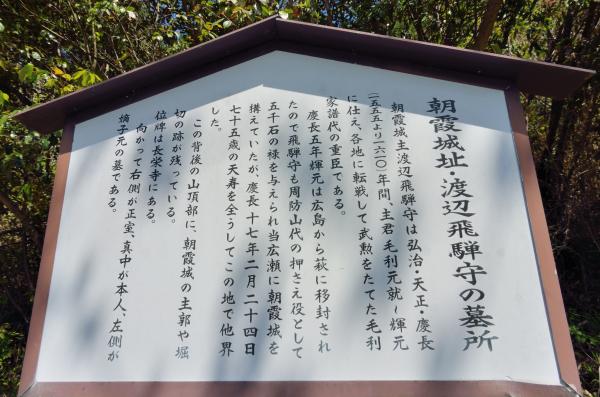 朝霞城址・渡辺飛騨守の墓所
朝霞城主渡辺飛騨守は弘治・天正・慶長
(一五五五より一六一〇)年間、主君毛利元就~輝元
に仕え、各地に転戦して武勲をたてた毛利
家譜代の重臣である。
慶長五年輝元は広島から萩に移封され
たので飛騨守も周防山代の押さえ役として
五千石の禄を与えられ当広瀬に朝霞城を
構えていたが、慶長十七年二月二十四日
七十五歳の天寿を全うしてこの地で他界
した。
この背後の山頂部に、朝霞城の主郭や堀
切の跡が残っている。
位牌は長栄寺にある。
向かって右側が正室、真中が本人、左側が
嫡子元の墓である。